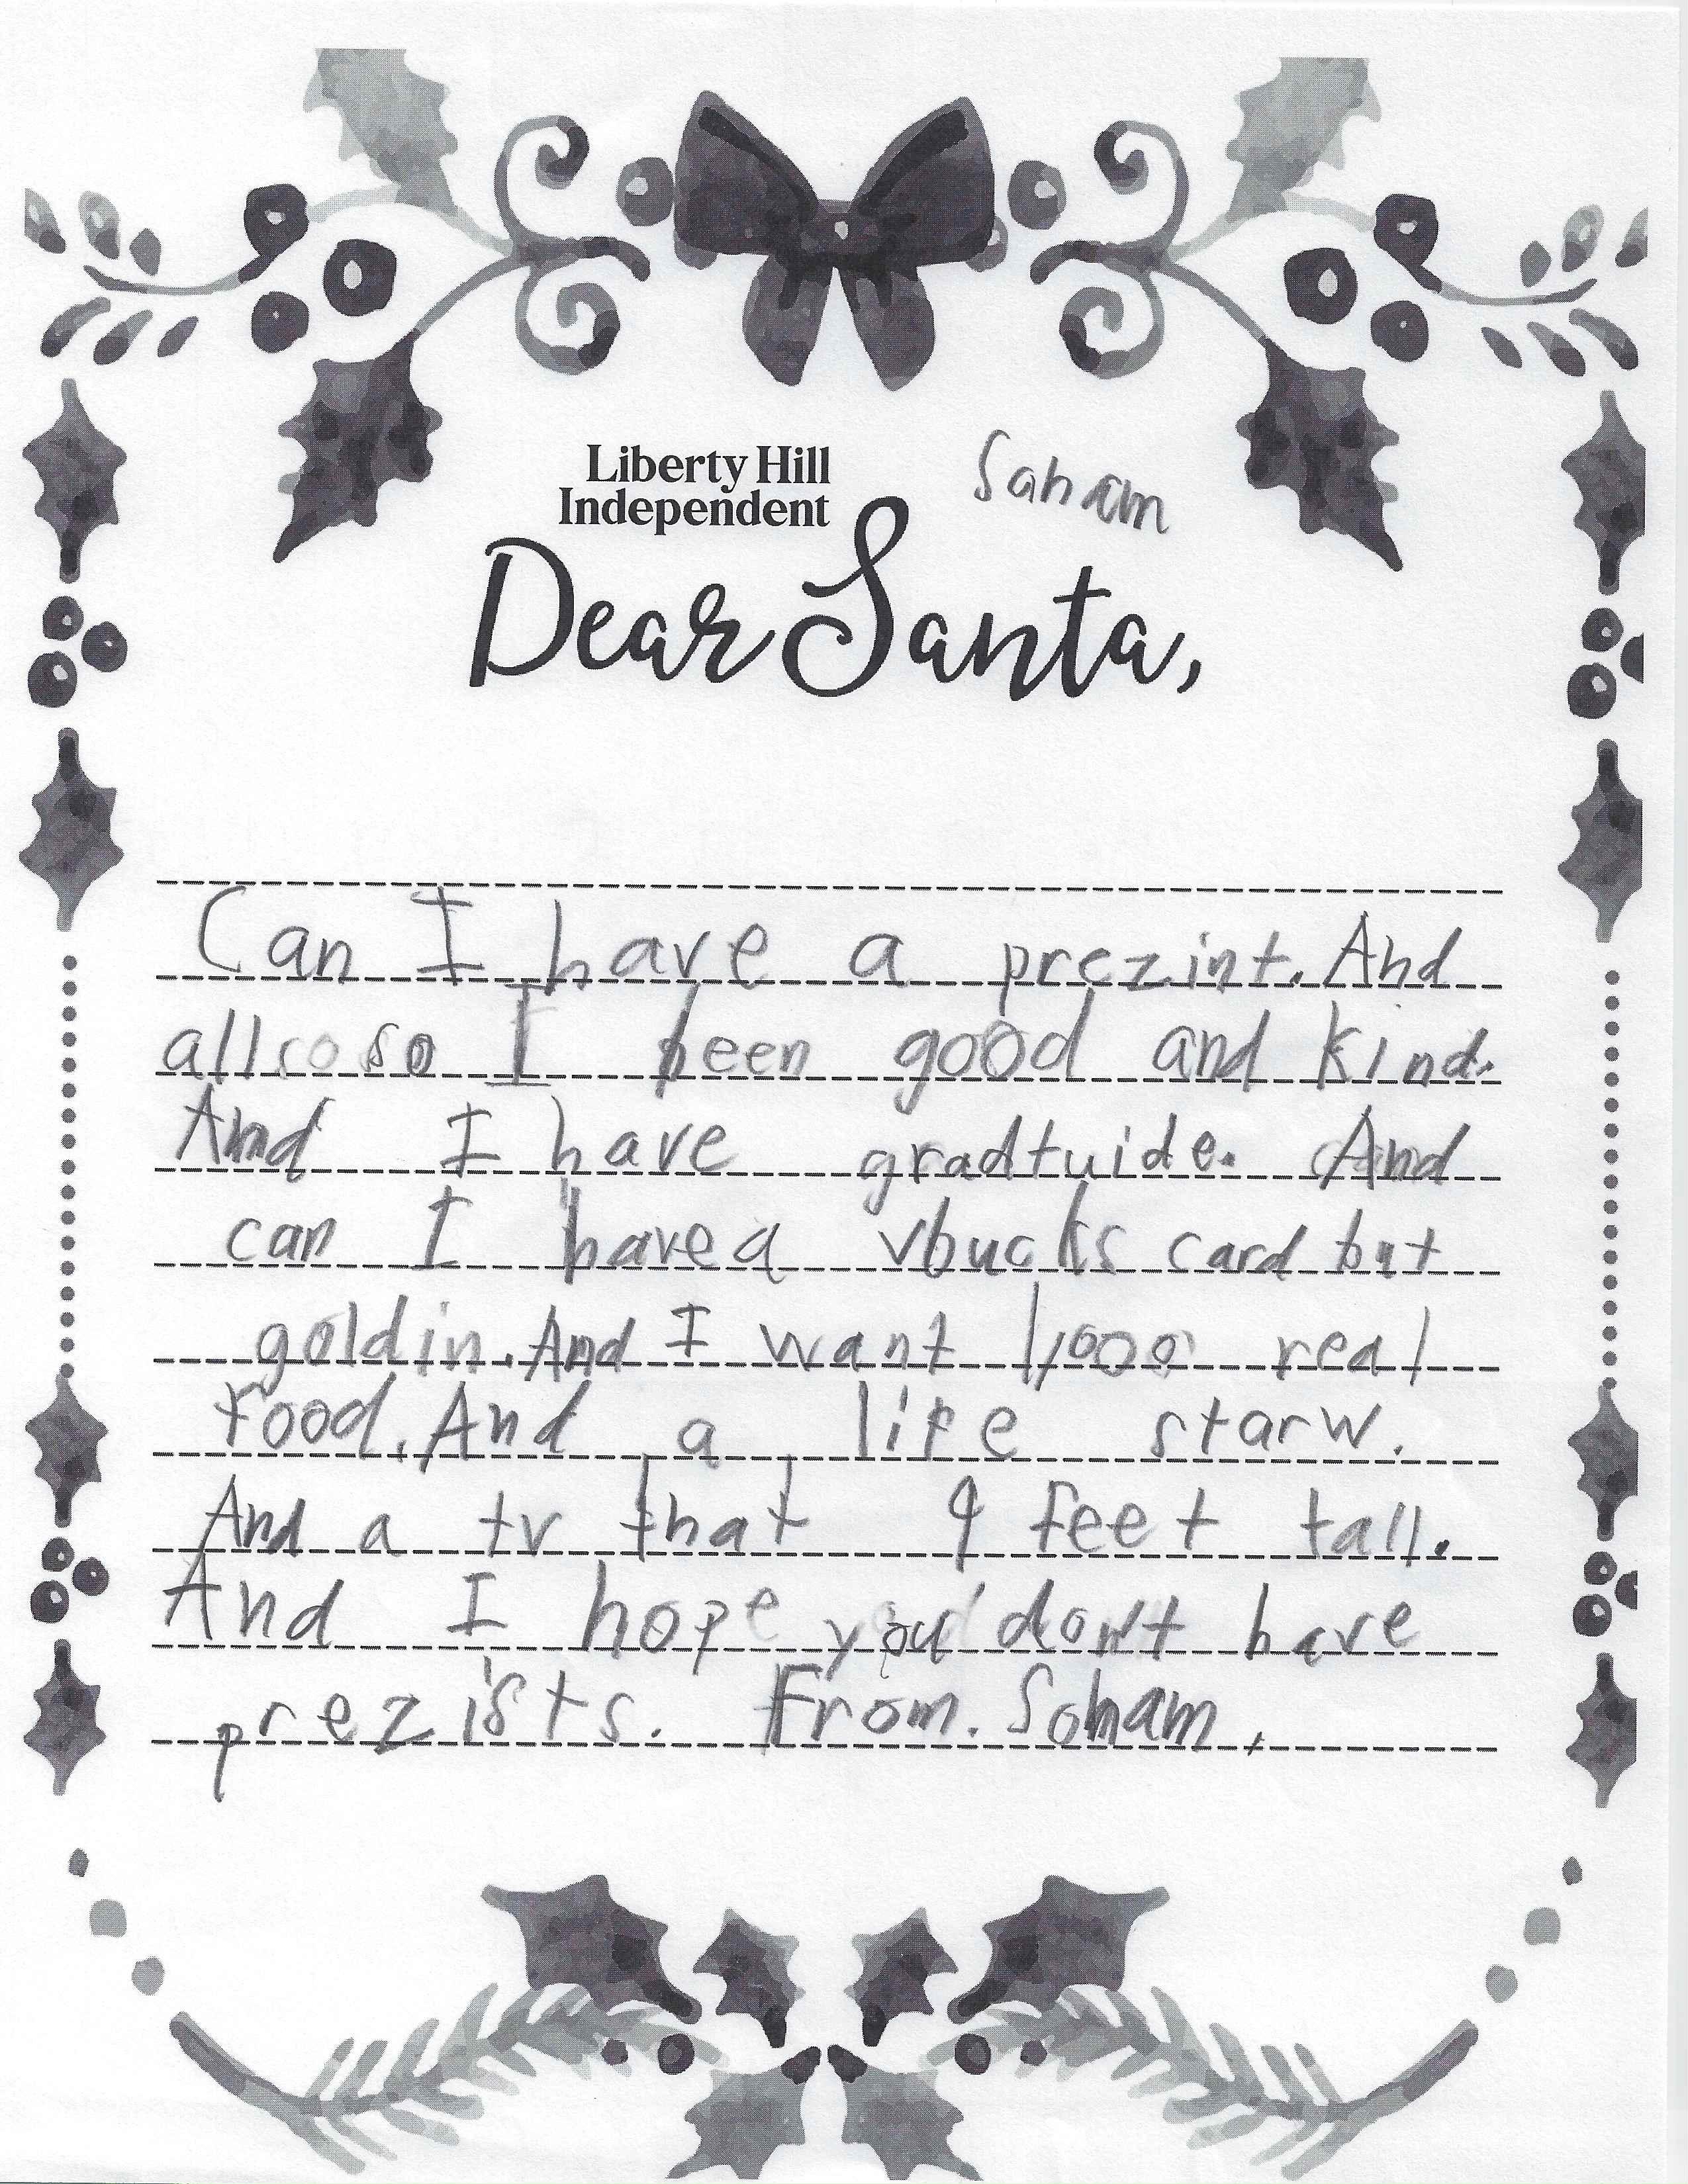 Liberty Hill
Independent
Soham
Dear Santa,
Can I have a prezint. And
allso so I been good and kind.
And I have gradtuide. And
can I have a vbucks card but
goldin. And I want 1,000 real
food. And a life starw.
And a tv that 9 feet tall.
And I hope you don't have
prezists. From. Soham.